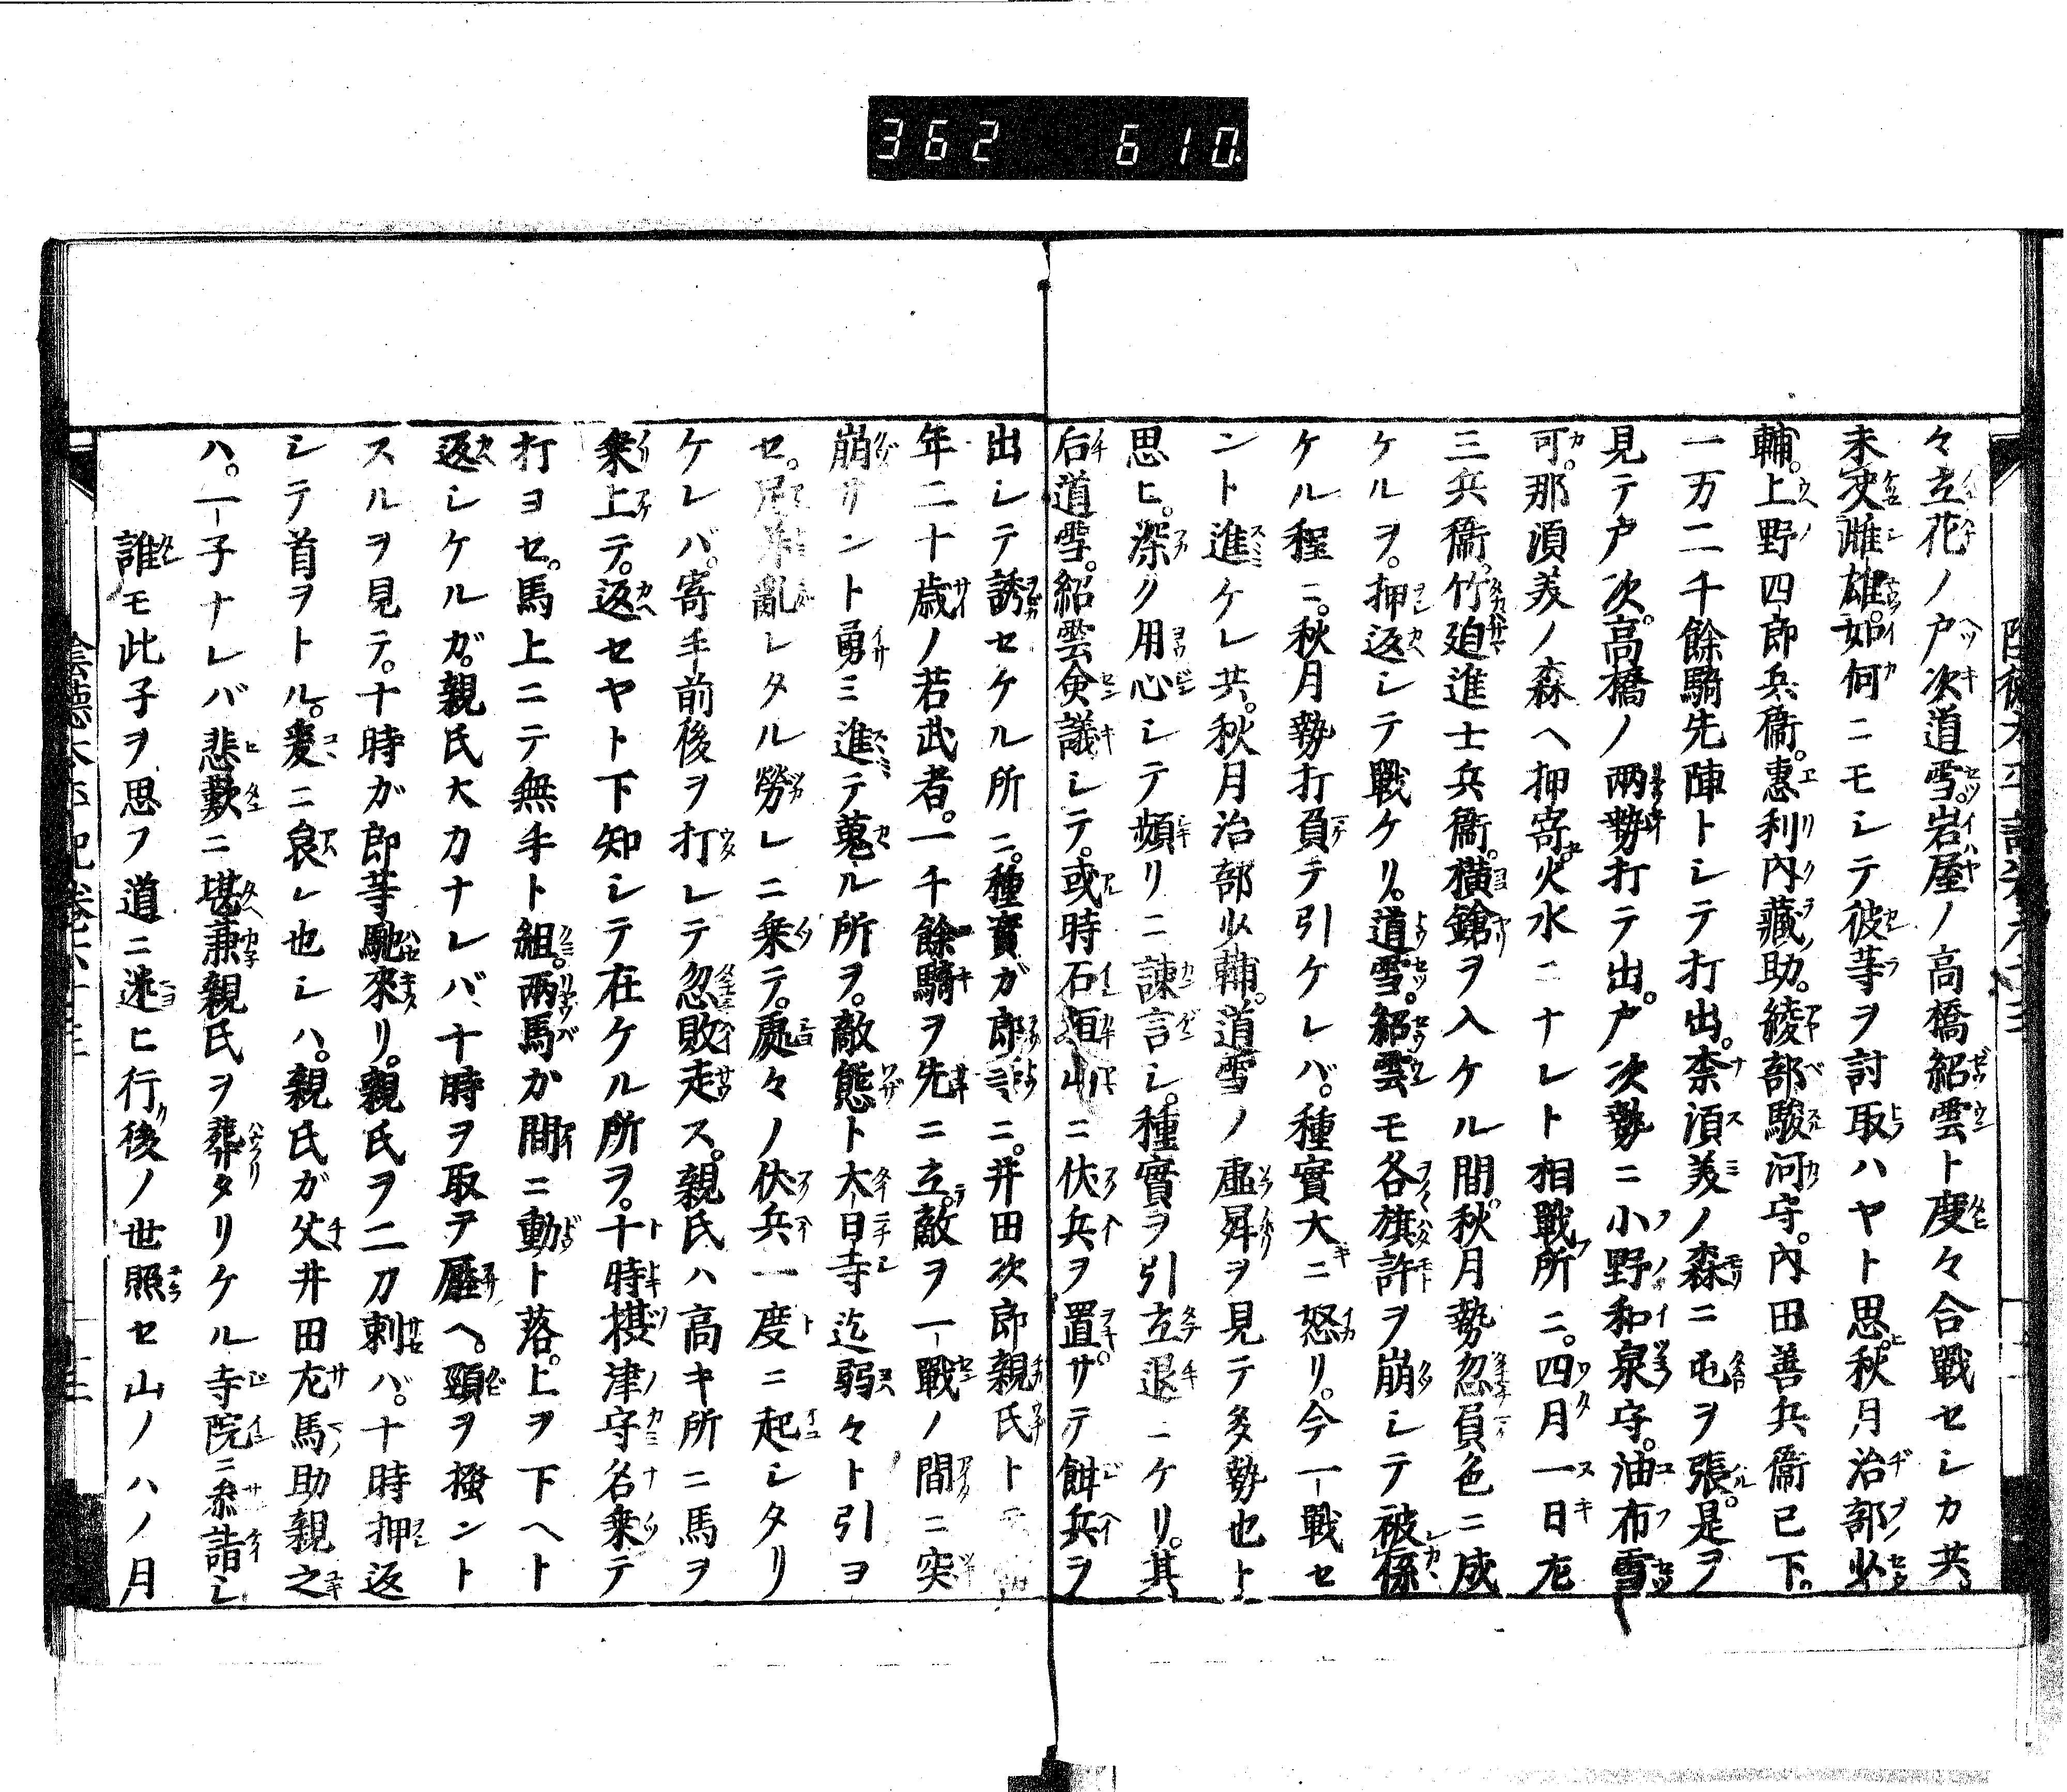 362 610
々立花ノ戸次道雪。岩屋ノ高橋紹雲ト度々合戰セシカ共。
未決雌雄。如何ニモシテ彼等ヲ討取ハヤト思ヒ。秋月治部少
輔。上野四郎兵衞。惠利內藏助。綾部駿河守。內田善兵衞已下。
一万二千餘騎先陣トシテ打出。柰須美ノ森ニ屯ヲ張。是ヲ
見テ戸次。高橋ノ兩勢打テ出。戸次勢ニ小野和泉守。油布雪
可。那須美ノ森ヘ押寄。火水ニナレト相戰所ニ。四月一日左
三兵衞。竹廹進士兵衞。橫鎗ヲ入ケル間。秋月勢忽負色ニ成
ケルヲ。押返シテ戰ケリ。道雪。紹雲モ各旗許ヲ崩シテ被係
ケル程ニ。秋月勢打負テ引ケレバ。種實大ニ怒リ。今一戰セ
ント進ケレ共。秋月治部少輔。道雪ノ虛昇ヲ見テ多勢也ト
思ヒ。深ク用心シテ頻リニ諫言シ。種實ヲ引立退ニケリ。其
后道雪。紹雲僉議シテ。或時石垣山ニ伏兵ヲ置。サテ餌兵ヲ
出シテ誘セケル所ニ。種實ガ郎等ニ。井田次郎親氏トテ
年二十歳ノ若武者。一千餘騎ヲ先ニ立。敵ヲ一戰ノ間ニ突
崩リント勇ミ進テ蒐ル所ヲ。敵態ト大日寺迄弱々ト引ヨ
セ。足並亂レタル勞レニ乗テ。處々ノ伏兵一度ニ起シタリ
ケレバ。寄手前後ヲ打レテ忽敗走ス。親氏ハ高キ所ニ馬ヲ
乗上テ。返セヤト下知シテ在ケル所ヲ。十時摂津守名乗テ
打ヨセ。馬上ニテ無手ト組。兩馬カ間ニ動ト落。上ヲ下ヘト
返シケルガ。親氏大カナレバ、十時ヲ取テ壓ヘ。頸ヲ搔ント
スルヲ見テ。十時ガ郎等馳來リ。親氏ヲ二刀刺バ。十時押返
シテ首ヲトル。爰ニ哀レ也シハ。親氏ガ父井田左馬助親之
ハ。一子ナレバ悲歎ニ堪兼親氏ヲ葬タリケル寺院ニ參詣シ
誰モ此子ヲ思フ道ニ迷ヒ行後ノ世照セ山ノハノ月